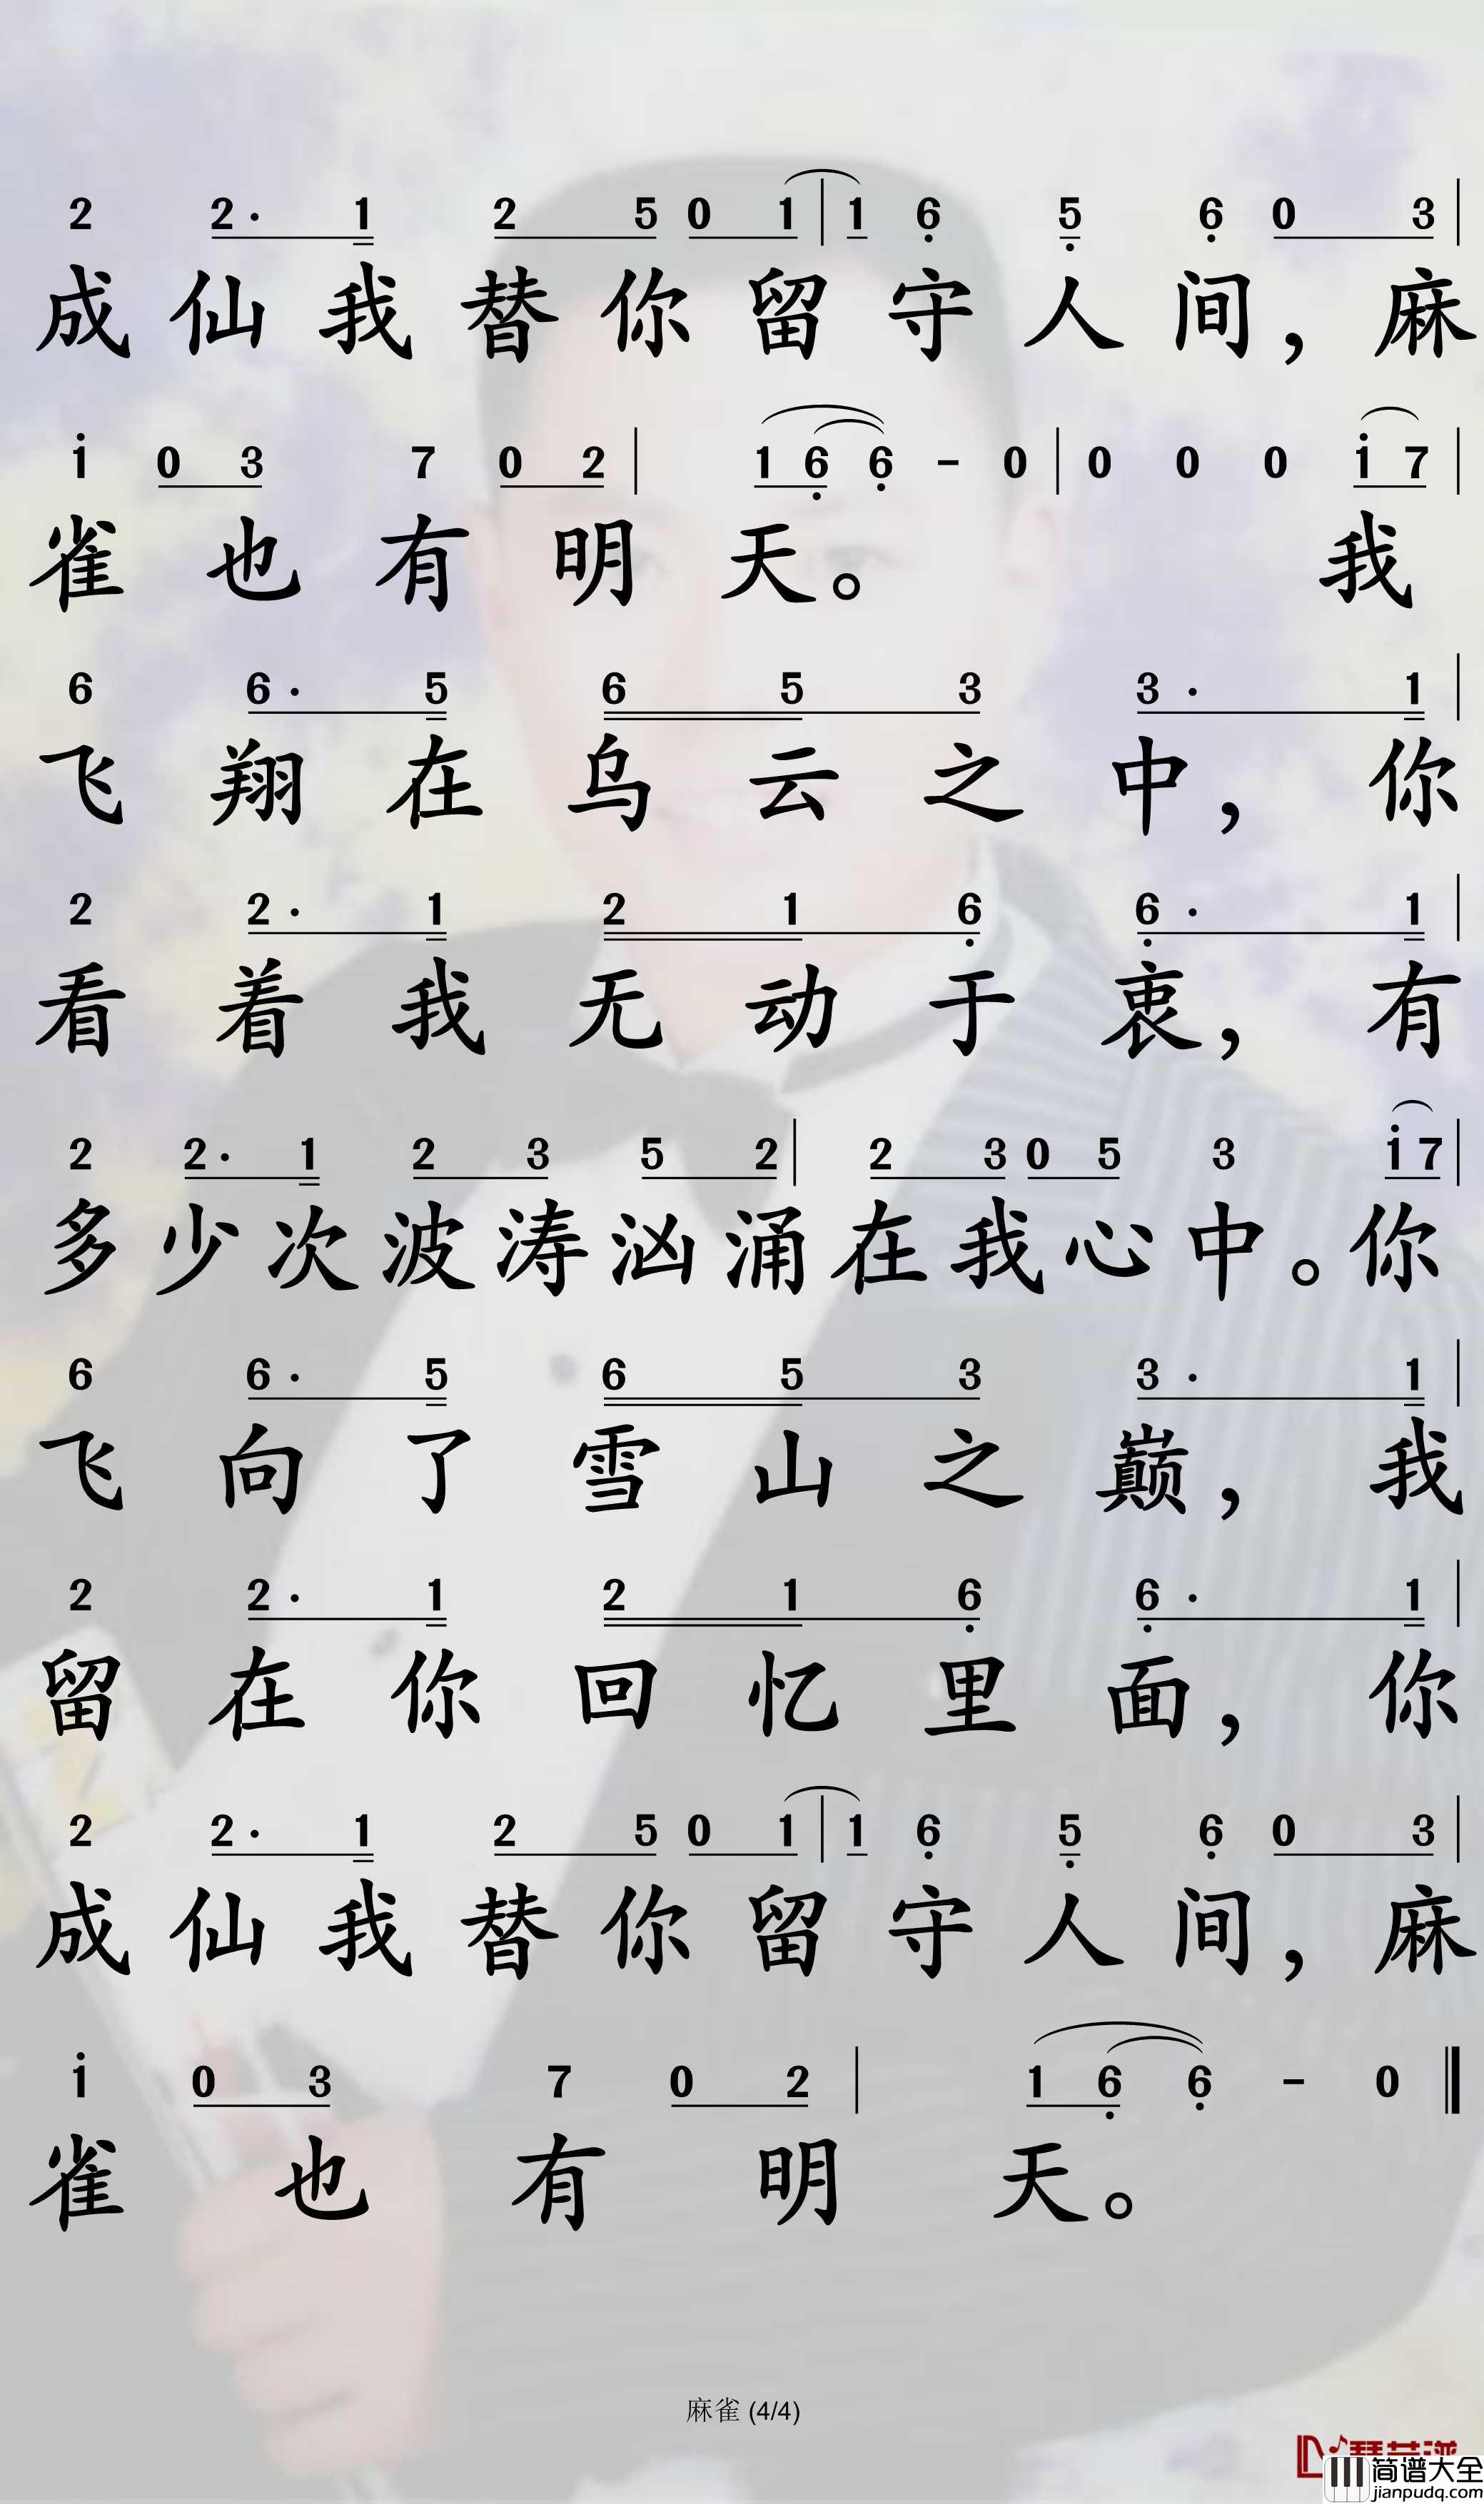 2 2· 1 2 5 0 1 | 1 6 5 6 0 3 |
成仙我替你留守人间，麻
i 0 3 7 0 2 | 1 6 6 - 0 | 0 0 0 i 7 |
雀也有明天。 我
6 6· 5 6 5 3 3· 1 |
飞翔在乌云之中，你
2 2· 1 2 1 6 6· 1 |
看着我无动于衷，有
2 2· 1 2 3 5 2 | 2 3 0 5 3 i 7 |
多少次波涛汹涌在我心中。你
6 6· 5 6 5 3 3· 1 |
飞向了雪山之巅，我
2 2· 1 2 1 6 6· 1 |
留在你回忆里面，你
2 2· 1 2 5 0 1 | 1 6 5 6 0 3 |
成仙我替你留守人间，麻
i 0 3 7 0 2 | 1 6 6 - 0 ‖
雀也有明天。
麻雀 (4/4)
简谱大全
jianpudq.com